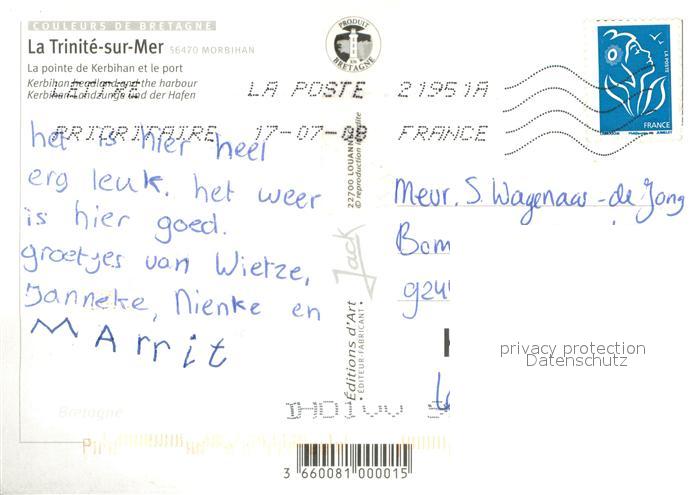 COULEURS DE BRETAGNE
La Trinité-sur-Mer 56470 MORBIHAN
La pointe de Kerbihan et le port
Kerbihan headland and the harbour
Kerbihan Landzunge und der Hafen
PRODUIT EN BRETAGNE
LETTRE LA POSTE 21951A
PRIORITAIRE 17-07-08 FRANCE
LA POSTE
FRANCE
het is hier heel
erg leuk. het weer
is hier goed.
groetjes van Wietze,
Janneke, Nienke en
MArrit
Mevr. S. Wagenaar-de Jong
Bom
924
22700 LOUANNEC
© reproduction interdite
Jack
Éditions d'Art
• ÉDITEUR-FABRICANT •
privacy protection
Datenschutz
Bretagne
3 660081 000015